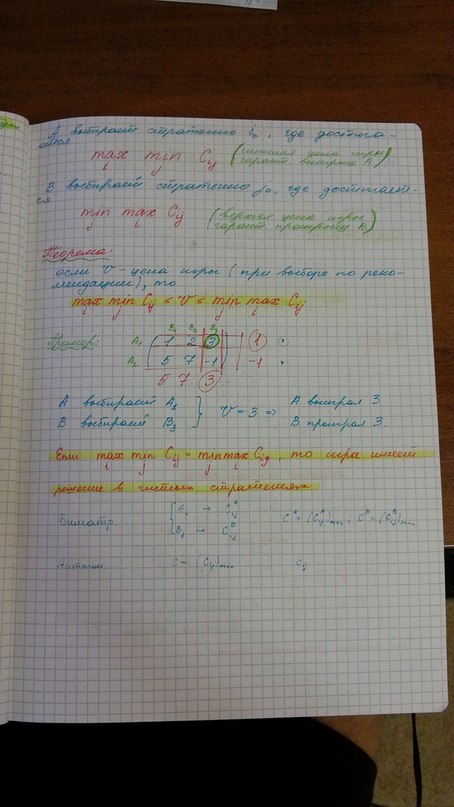 А выбирает стратегию i₀, где достига-
ется
max min Cij (нижняя цена игры
i j гарант. выигрыш А)
В выбирает стратегию j₀, где достигает-
ся
min max Cij (верхняя цена игры
j i гарант. проигрыш
Теорема:
если V - цена игры (при выборе по реко-
мендации), то
max min Cij ≤ V ≤ min max Cij
i j j i
Пример:
B₁ B₂ B₃
A₁ ( 1 2 3 ) 1
A₂ ( 5 7 -1 ) -1
5 7 3
А выбирает A₁ } V = 3 => А выиграл 3
В выбирает B₃ В проиграл 3
Если max min Cij = min max Cij, то игра имеет
i j j i
решение в чистых стратегиях
Биматр.
C = (Cij)m×n Cij